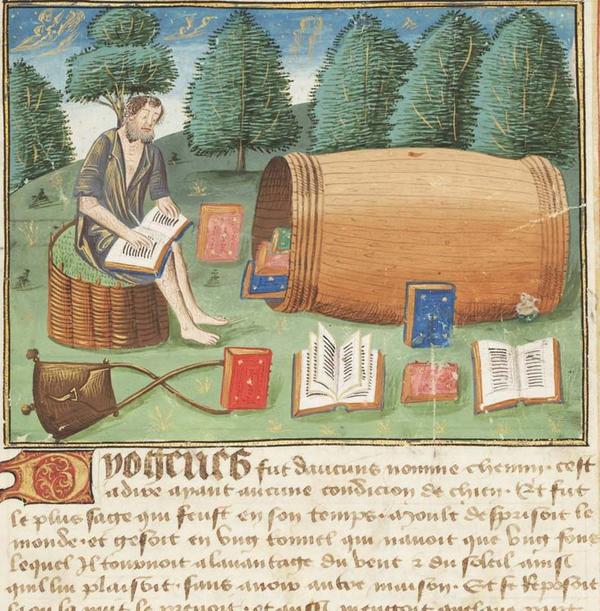 Dyogenes fut daucuns nomme chenin · cest
adire ayant aucune condicion de chien · Et fut
le plus sage qui feust en son temps · moult desprisoit le
monde · et gesoit en ung tonnel qui nauoit que ung fons
lequel Il tournoit alauantage du vent & du soleil ainsi
quil luy plaisoit · sans auoir autre maison · Et se Reposoit
la nuit le prenoit · et aussi mengoit